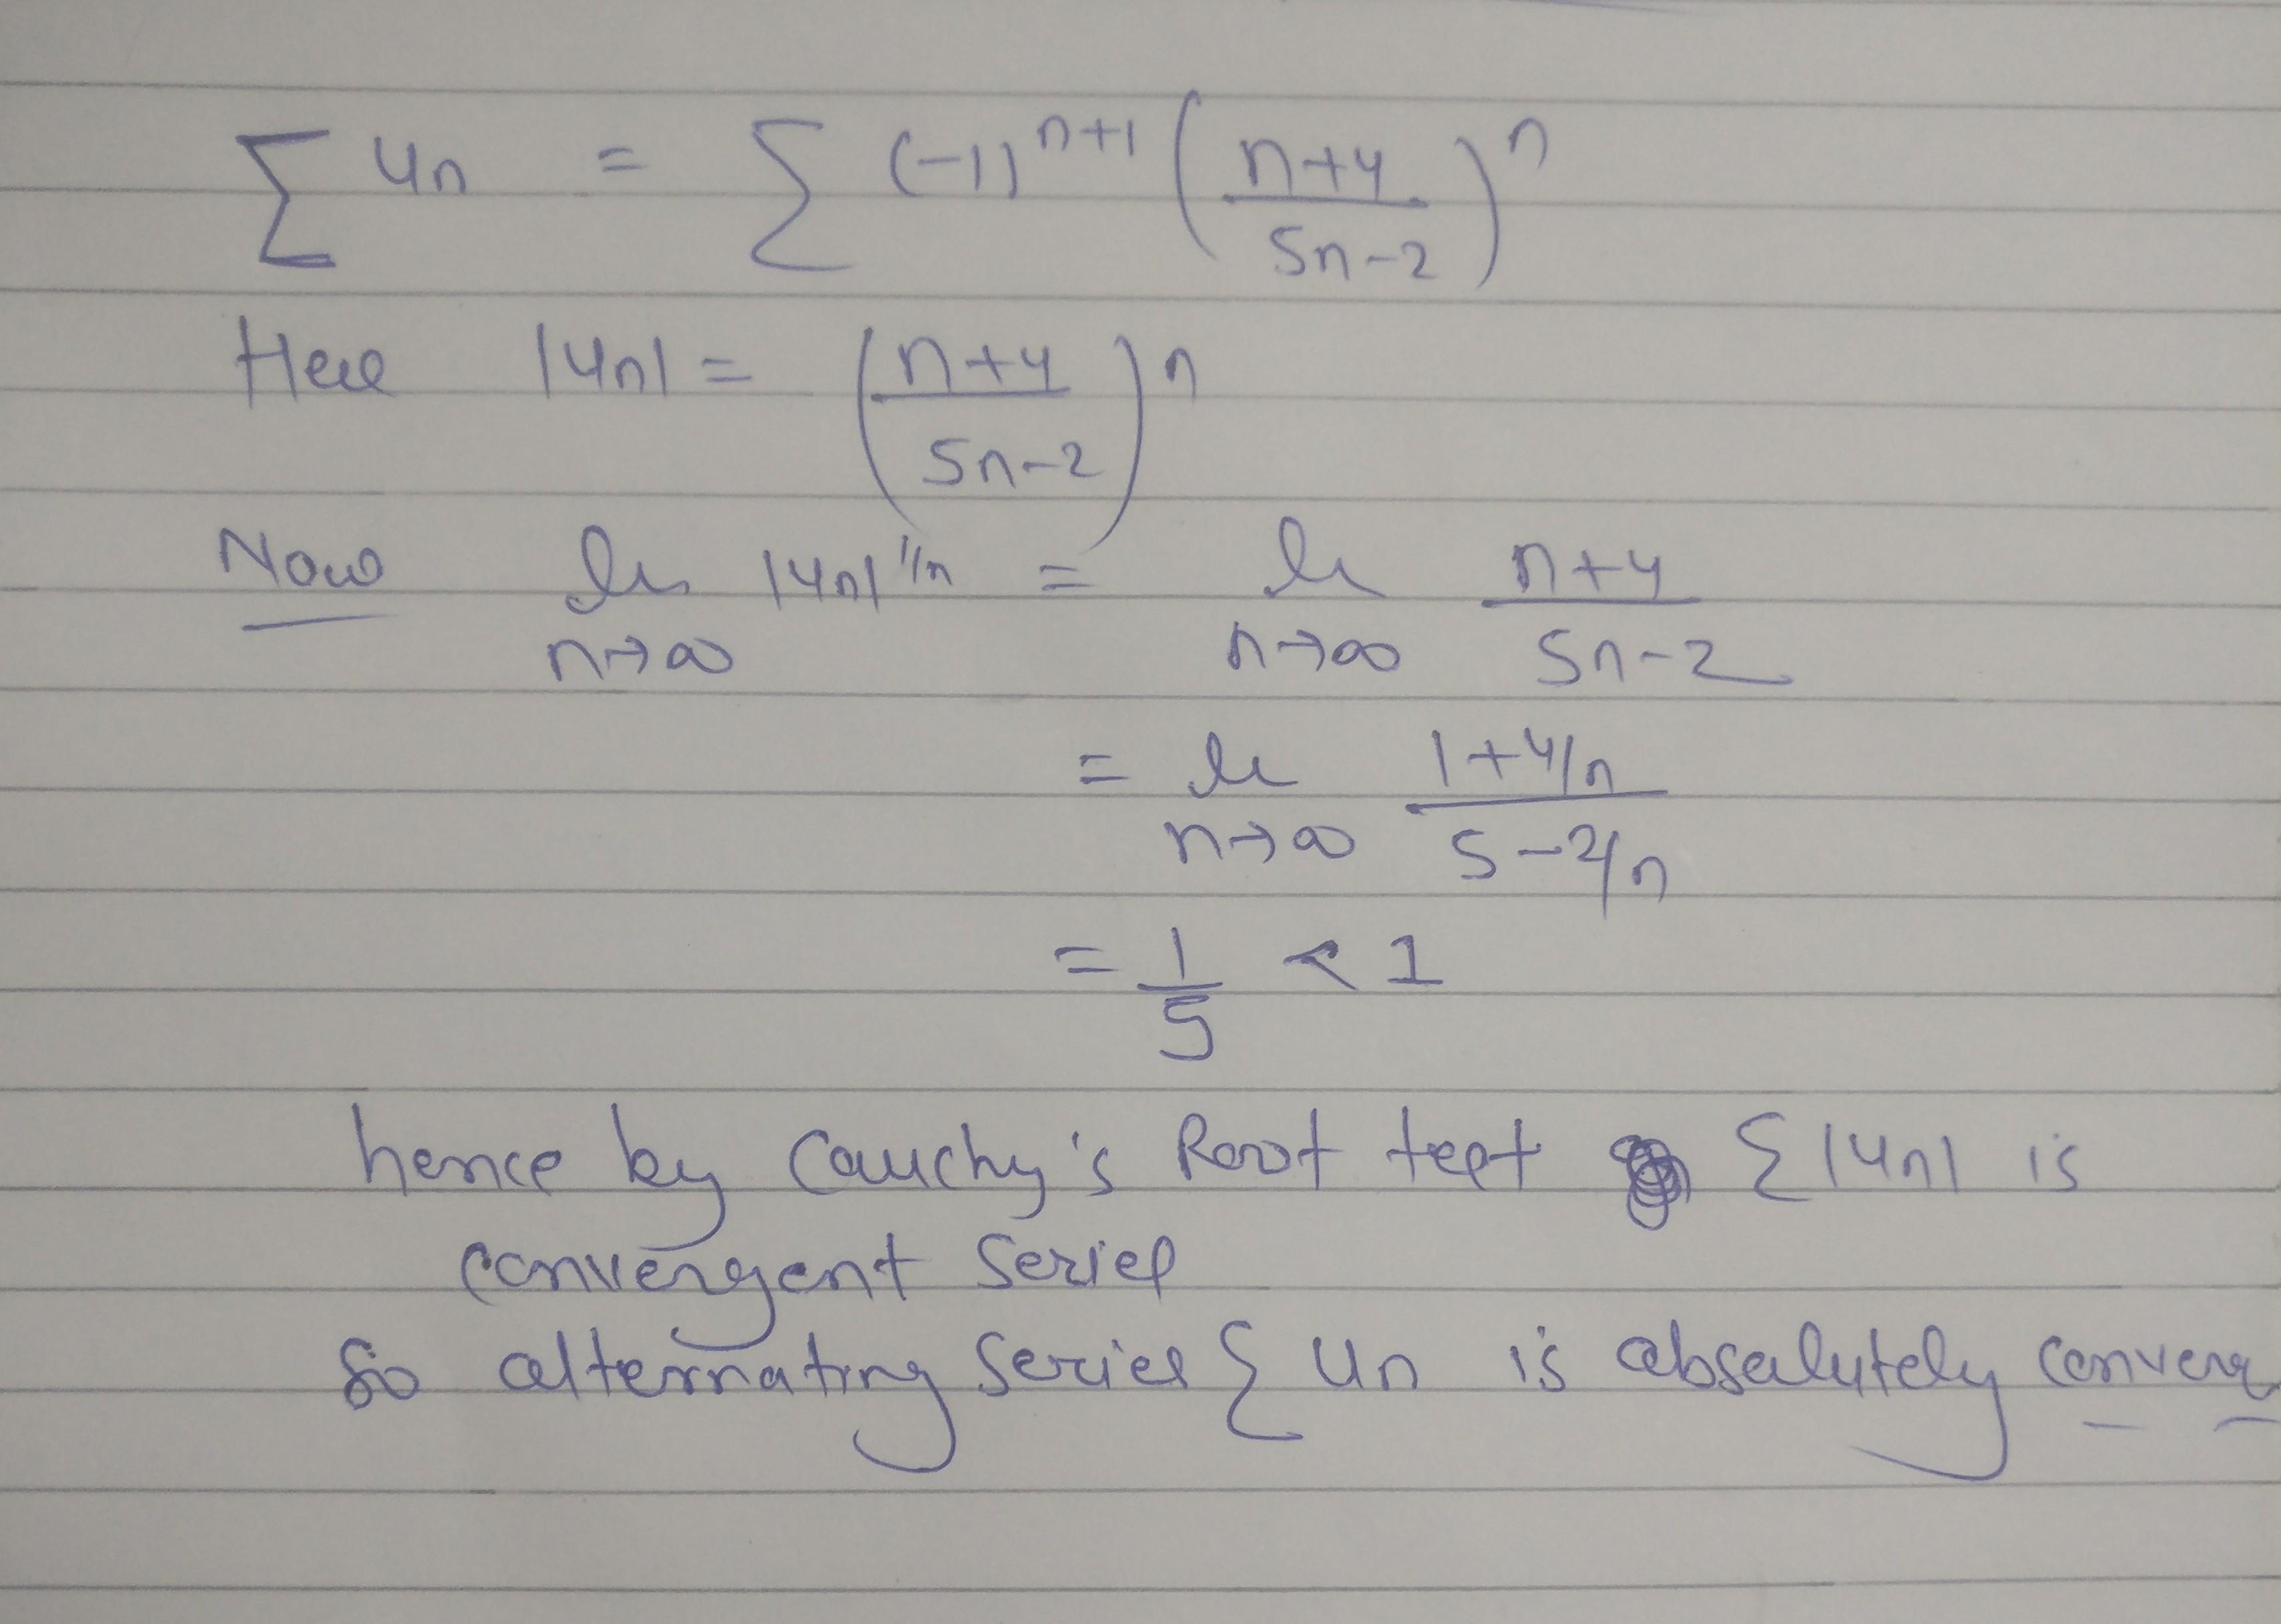 ∑ un = ∑ (-1)^(n+1) ((n+4)/(5n-2))^n
Here |un| = ((n+4)/(5n-2))^n
Now lim n→∞ |un|^(1/n) = lim n→∞ (n+4)/(5n-2)
= lim n→∞ (1+4/n)/(5-2/n)
= 1/5 < 1
hence by Cauchy's Root test ∑|un| is
convergent series
So alternating series ∑ un is absolutely converg